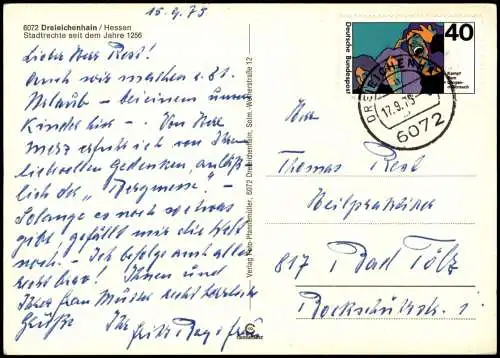 6072 Dreieichenhain / Hessen
Stadtrechte seit dem Jahre 1256
15.9.75
Lieber Herr Rest!
Auch wir machen z. Zt.
Urlaub - bei einem unserer
Kinder hier -. Von Herr
Merz erfuhr ich von Ihrem
liebvollen Gedenken, anläß-
lich der "Bergmesse". -
Solange es noch so etwas
gibt, gefällt mir die Welt
noch. - Ich befolge auch alles
recht brav! Ihnen und
Ihrer Frau Mutter recht herzliche
Grüße Ihr
Verlag Foto-Hannemüller, 6072 Dreieichenhain, Solm.-Weiherstraße 12
Deutsche Bundespost
40
Kampf
dem
Drogen-
missbrauch
DREIEICHENHAIN
17.9.75
6072
Herr
Thomas Rest
Heilpraktiker
817 Bad Tölz
Bockschützstr. 1